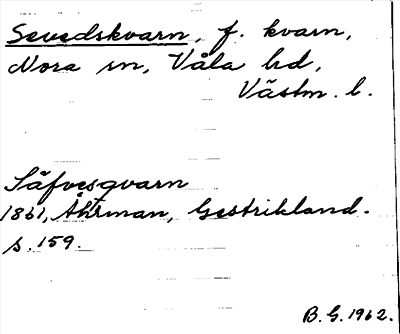 Sevedskvarn, f. kvarn,
Nora sn, Våla hd,
Västm. l.
Säfvesqvarn
1861, Åhrman, Gestrikland.
s. 159.
B. G. 1962.